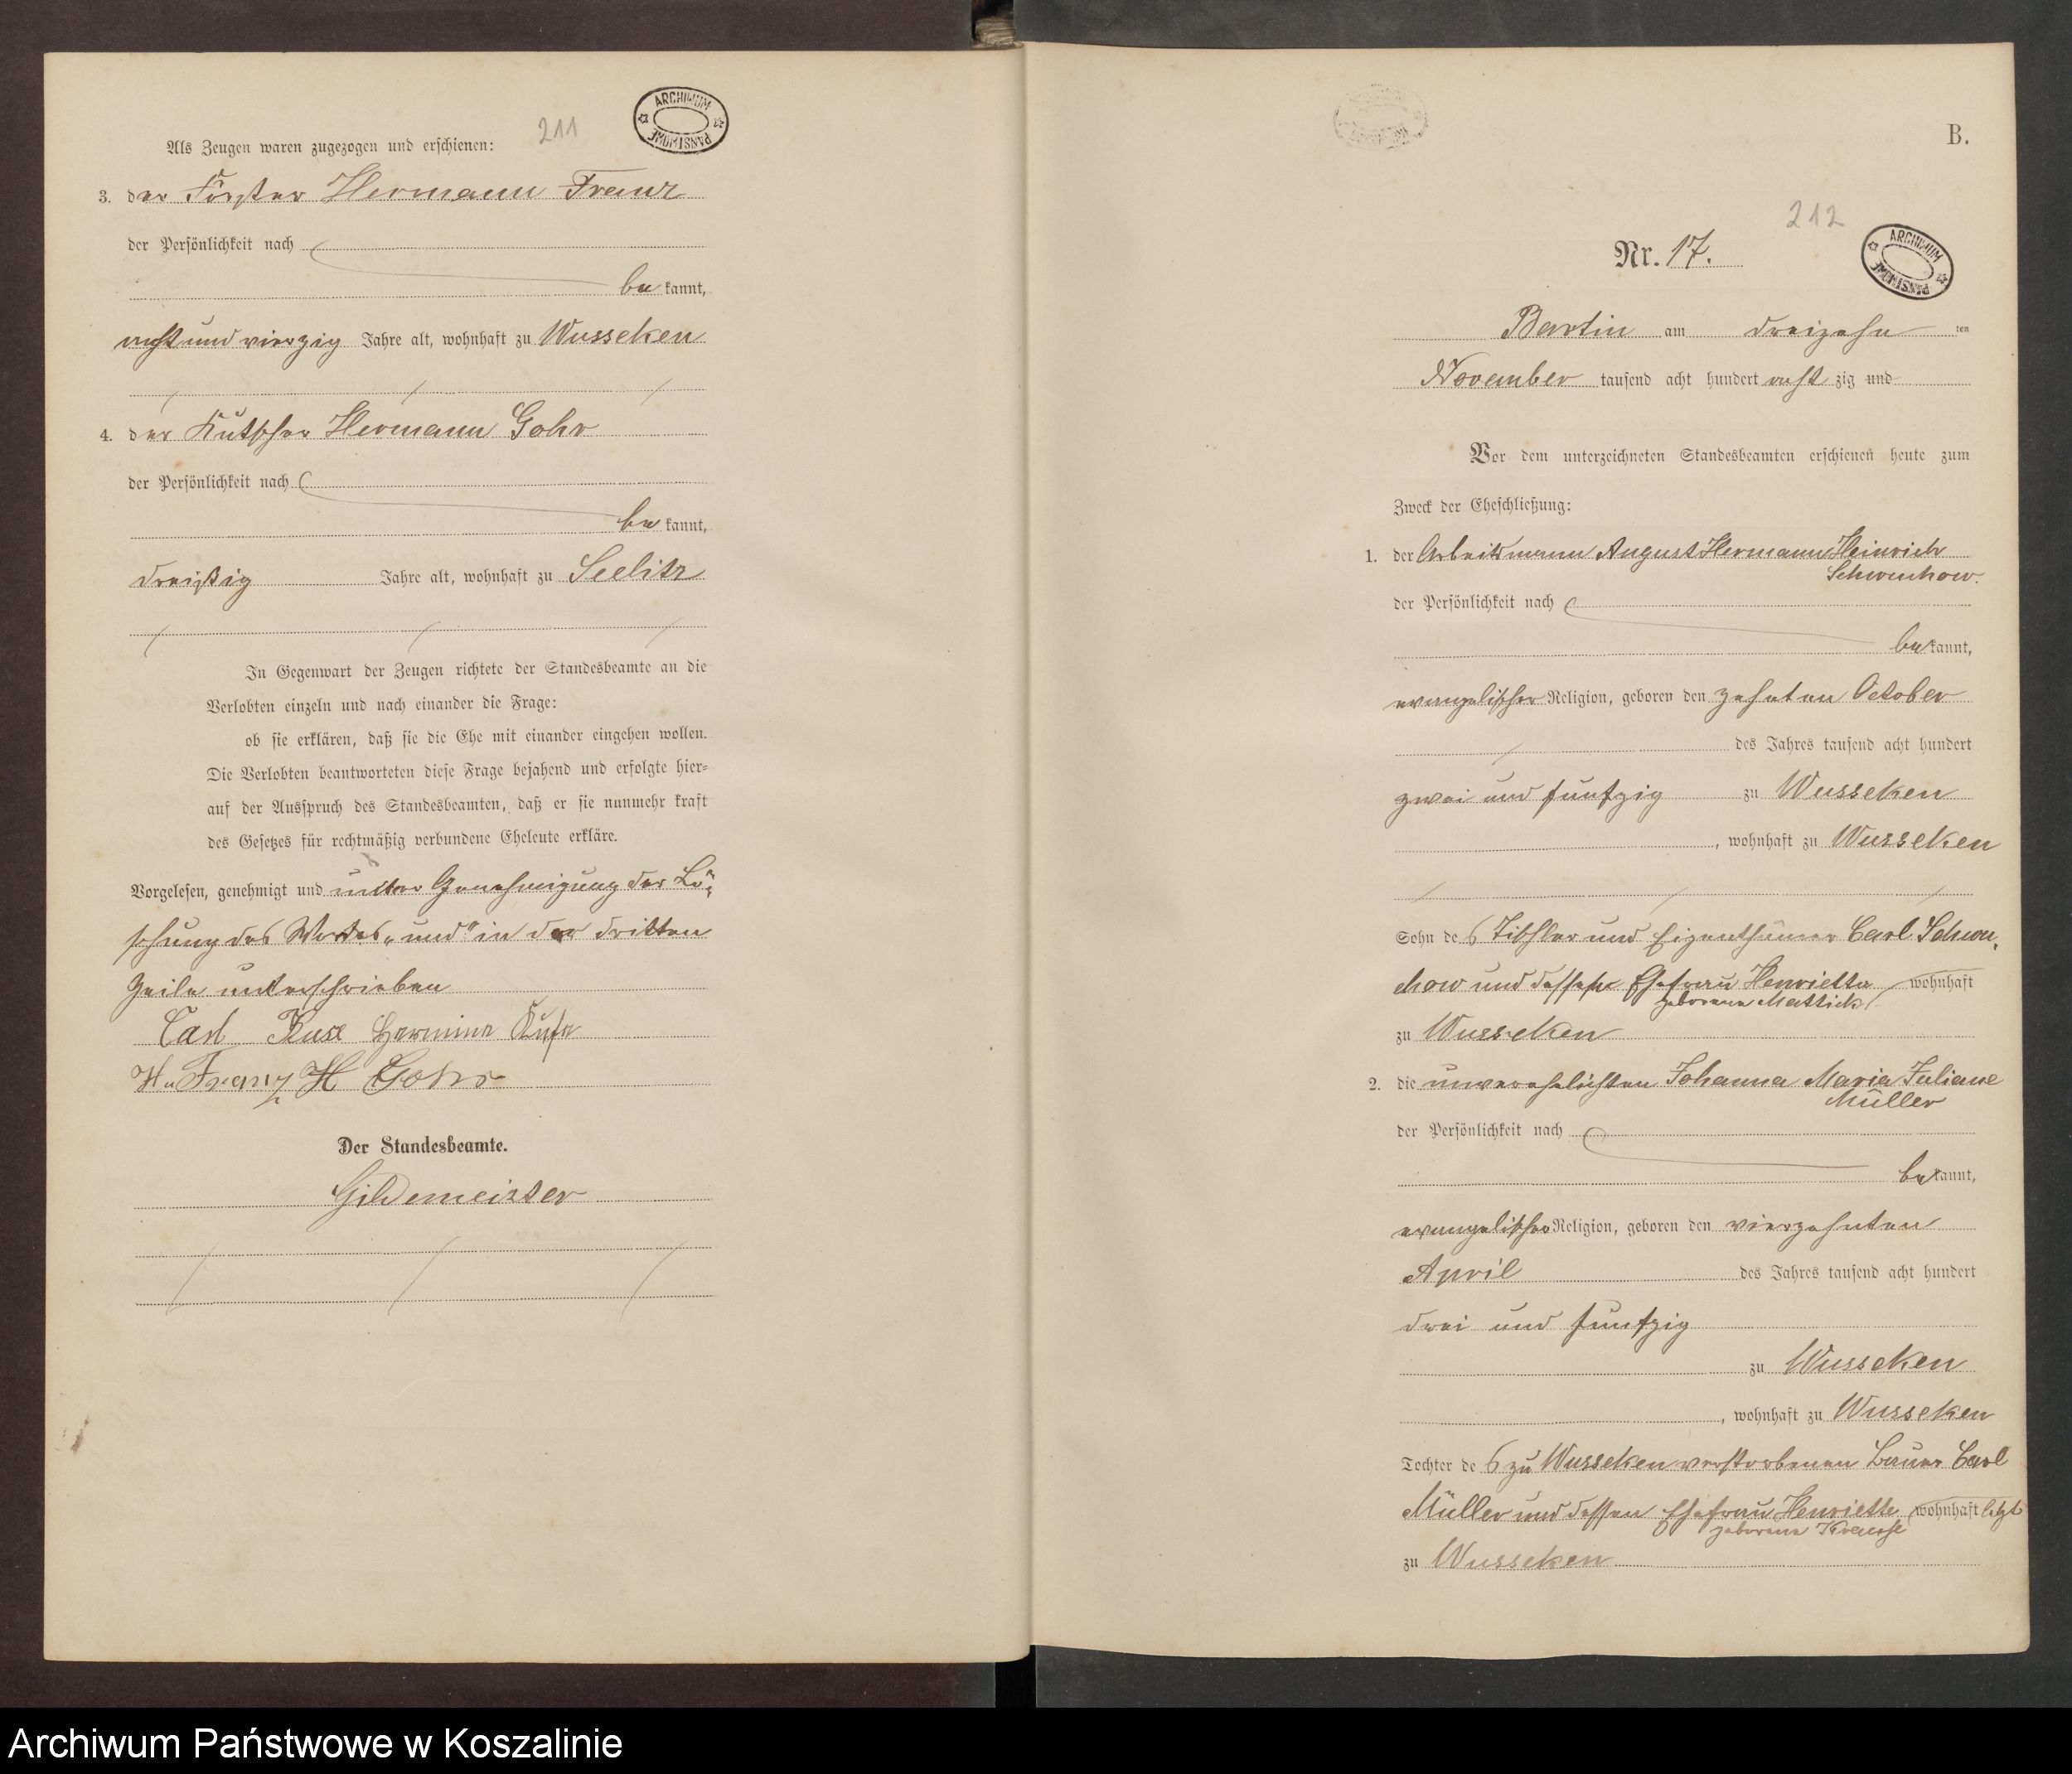 211
ARCHIWUM PAŃSTWOWE
Als Zeugen waren zugezogen und erschienen:
3. der Förster Hermann Franz
der Persönlichkeit nach
be kannt,
acht und vierzig Jahre alt, wohnhaft zu Wusseken
4. der Kutscher Hermann Gohr
der Persönlichkeit nach
be kannt,
dreißig Jahre alt, wohnhaft zu Seelitz
In Gegenwart der Zeugen richtete der Standesbeamte an die
Verlobten einzeln und nach einander die Frage:
ob sie erklären, daß sie die Ehe mit einander eingehen wollen.
Die Verlobten beantworteten diese Frage bejahend und erfolgte hier-
auf der Ausspruch des Standesbeamten, daß er sie nunmehr kraft
des Gesetzes für rechtmäßig verbundene Eheleute erkläre.
Vorgelesen, genehmigt und unter Genehmigung der Lö-
schung des Wortes „und" in der dritten
Zeile unterschrieben
Carl Kuse Hermine Kuse
H. Franz H Gohr
Der Standesbeamte.
Gildemeister
B.
212
ARCHIWUM PAŃSTWOWE
Nr. 17.
Bartin am dreizehn ten
November tausend acht hundert acht zig und
Vor dem unterzeichneten Standesbeamten erschienen heute zum
Zweck der Eheschließung:
1. der Arbeitsmann August Hermann Heinrich
Schwuchow.
der Persönlichkeit nach
be kannt,
evangelischer Religion, geboren den zehnten October
des Jahres tausend acht hundert
zwei und funfzig zu Wusseken
, wohnhaft zu Wusseken
Sohn des Tischler und Eigenthümer Carl Schwu-
chow und dessen Ehefrau Henriette wohnhaft
geborene Mattick
zu Wusseken
2. die unverehelichten Johanna Maria Juliane
Müller
der Persönlichkeit nach
be kannt,
evangelischer Religion, geboren den vierzehnten
April des Jahres tausend acht hundert
drei und funfzig
zu Wusseken
, wohnhaft zu Wusseken
Tochter des zu Wusseken verstorbenen Bauer Carl
Müller und dessen Ehefrau Henriette wohnhaft letzt
geborene Krause
zu Wusseken
Archiwum Państwowe w Koszalinie